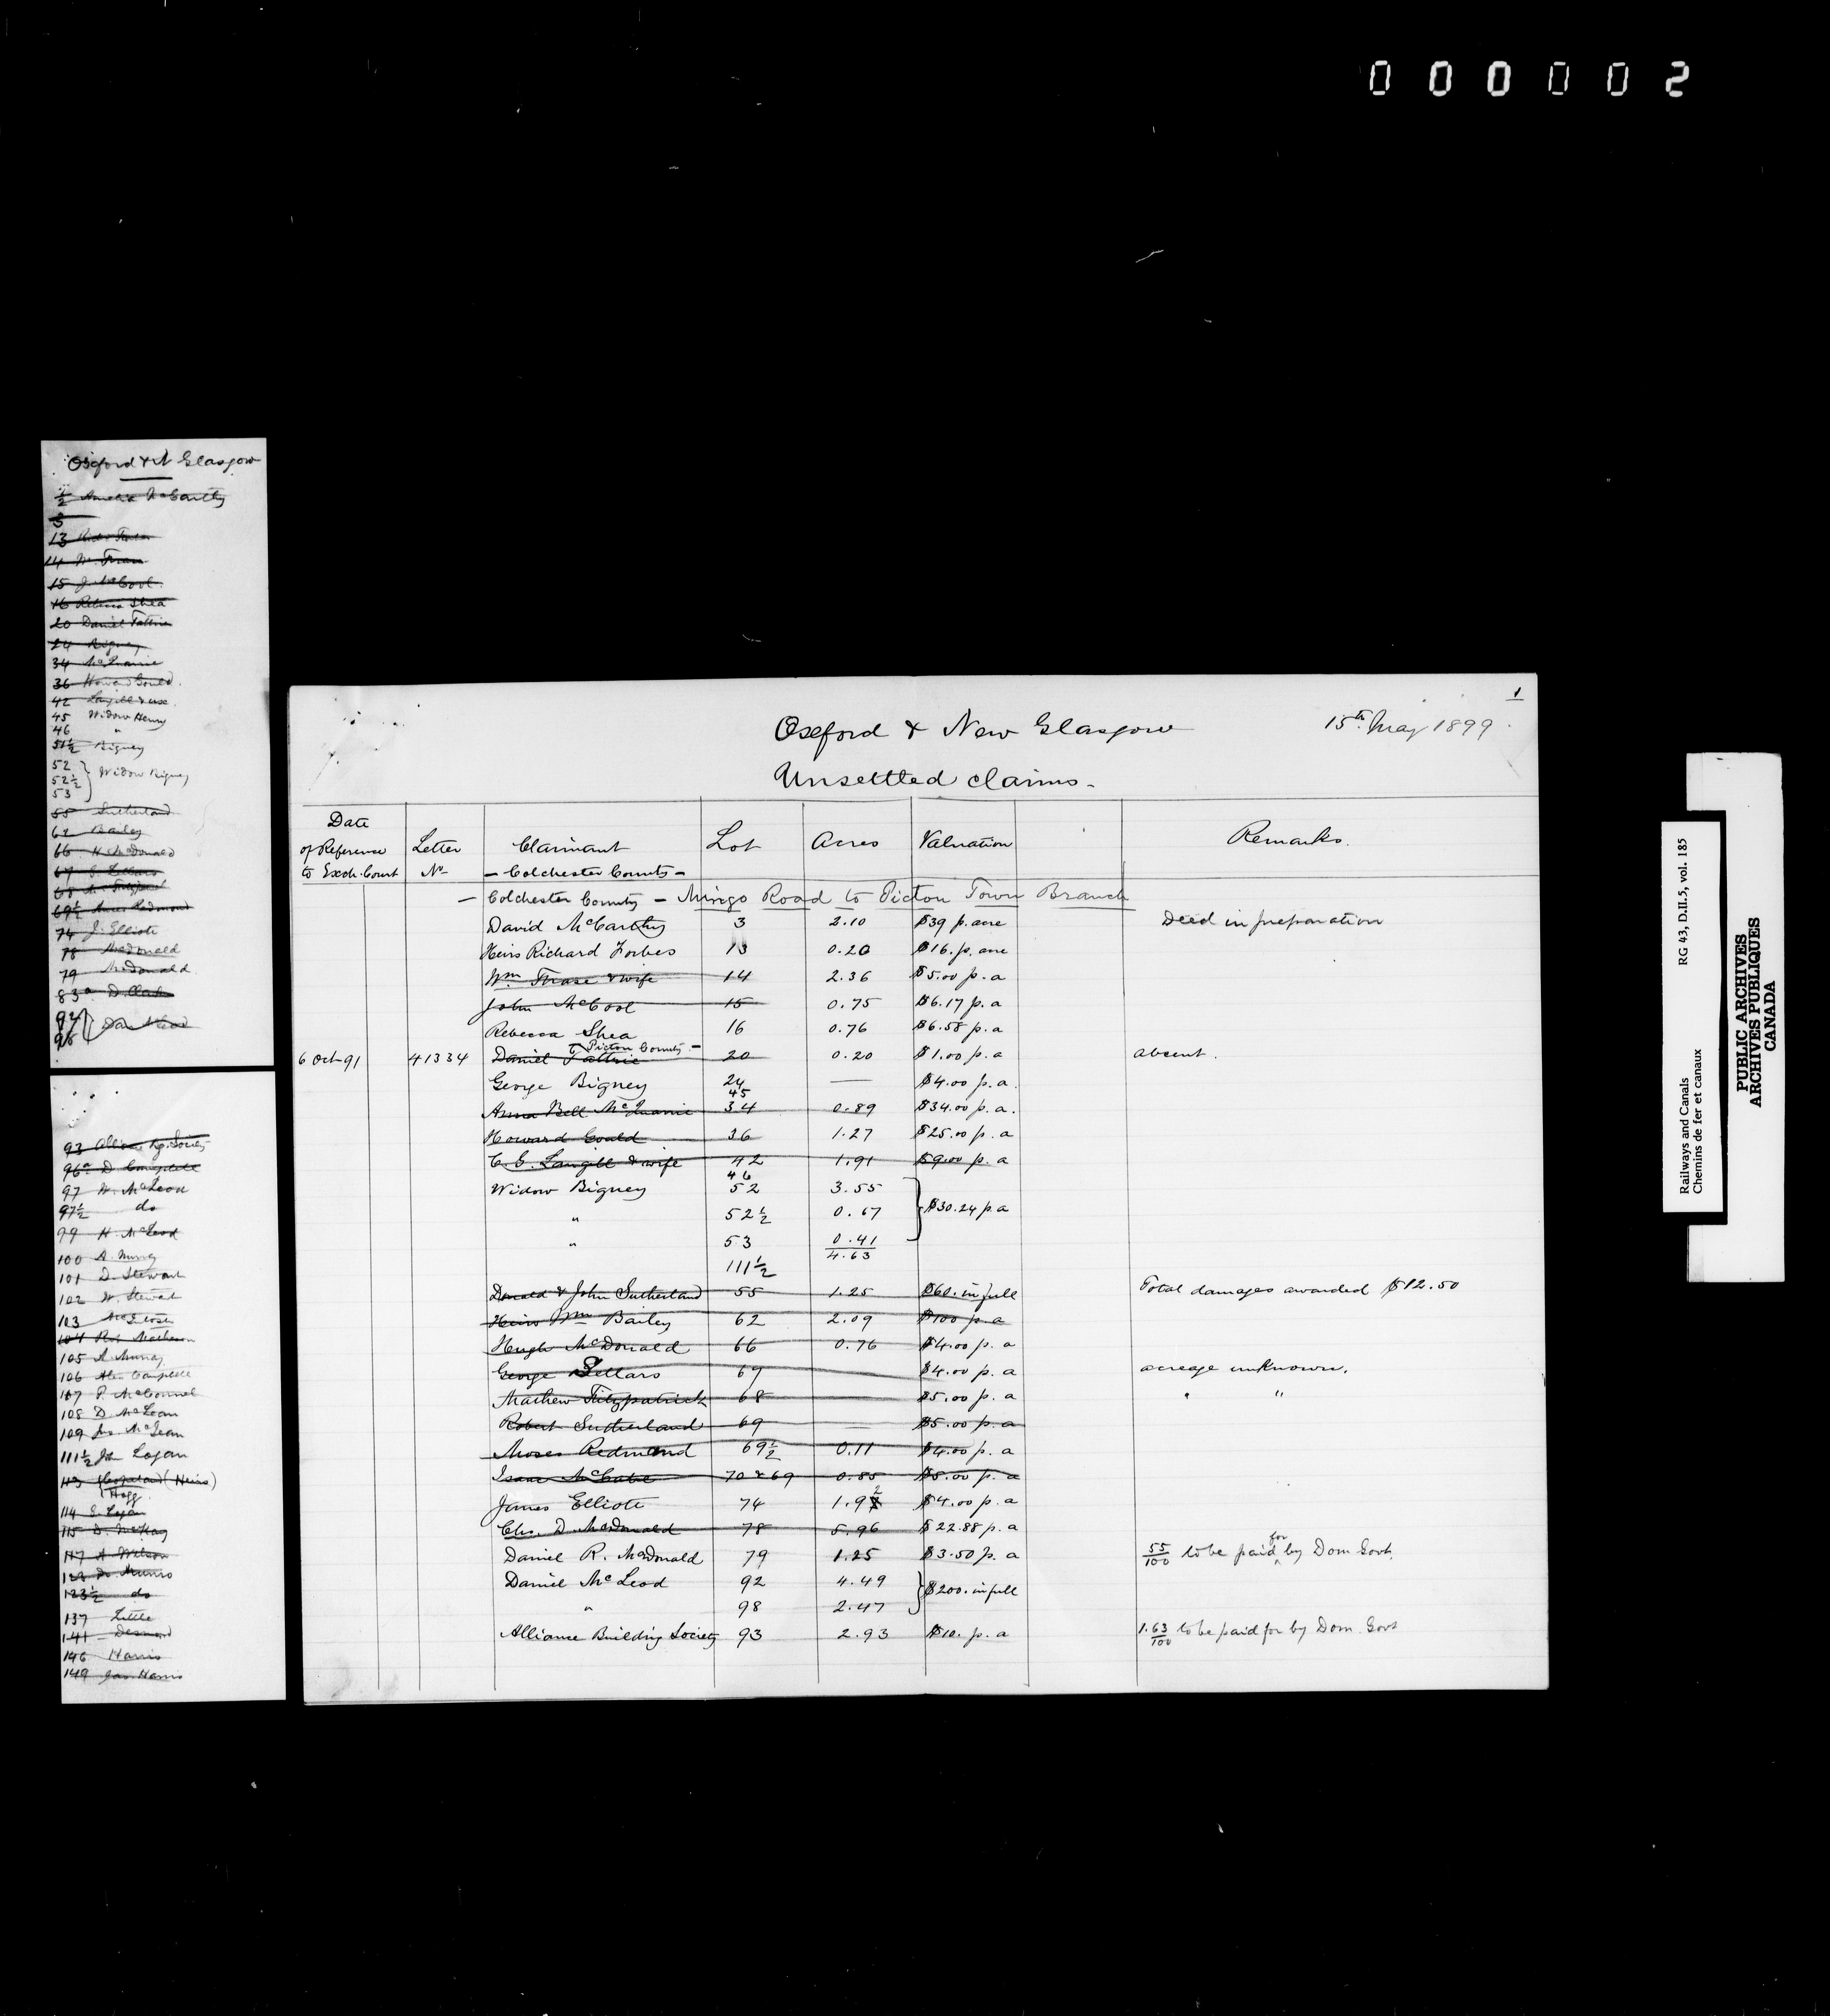 000002
Oxford & N Glasgow
1/2 Amelia McCarthy
3
13
14 Wm
15 J. McCool
16 Rebecca Shea
20 Daniel Tattrie
24 Bigney
34 McQuarrie
36 Howard Gould
42 Langill & wife
45 Widow Henry
46 "
51 1/2 Bigney
52
52 1/2 } Widow Bigney
53
55 Sutherland
62 Bailey
66 H McDonald
67 G. Sellars
68 M. Fitzpatrick
69 1/2 Moses Redmond
74 J. Elliott
78 McDonald
79 McDonald
83a D. Clark
92
98 Dan McLeod
93 Alliance Bg. Society
96a D Campbell
97 W. McLeod
97 1/2 do
99 H. McLeod
100 A. Murray
101 D. Stewart
102 W. Stewart
103
104 Matheson
105 A Murray
106 Alex Campbell
107 P. McConnel
108 D McLean
109 Jas McLean
111 1/2 Logan
113 Copeland (Heirs)
Hogg
114 Logan
115 D. McKay
117 A Wilson
123 Munro
123 1/2 do
137 Little
141 Desmond
146 Harris
149 Jas Harris
1
Oxford & New Glasgow 15th May 1899
Unsettled claims -
Date of Reference to Exch. Court | Letter No | Claimant | Lot | Acres | Valuation | Remarks.
- Colchester County -
- Colchester County - Mingo Road to Pictou Town Branch
David McCarthy 3 2.10 $39 p. acre Deed in preparation
Heirs Richard Forbes 13 0.20 $16. p. acre
Wm Thrase & wife 14 2.36 $5.00 p. a
John McCool 15 0.75 $6.17 p. a
Rebecca Shea 16 0.76 $6.58 p. a
- Pictou County -
6 Oct 91 41334 Daniel Tattrie 20 0.20 $1.00 p. a absent.
George Bigney 24 — $4.00 p. a.
45
Anna Bell McQuarrie 34 0.89 $34.00 p. a.
Howard Gould 36 1.27 $25.00 p. a
C. E. Langill & wife 42 1.91 $9.00 p. a
46
Widow Bigney 52 3.55
" 52 1/2 0.67 } $30.24 p a
" 53 0.41
4.63
111 1/2
Donald & John Sutherland 55 1.25 $60. in full Total damages awarded $12.50
Heirs Wm Bailey 62 2.09 $100 p a
Hugh McDonald 66 0.76 $4.00 p. a
George Sellars 67 $4.00 p. a acreage unknown.
Mathew Fitzpatrick 68 $5.00 p. a " "
Robert Sutherland 69 $5.00 p. a
Moses Redmond 69 1/2 0.11 $4.00 p. a
Isaac McCabe 70 & 69 0.85 $5.00 p. a
James Elliott 74 1.92 $4.00 p. a
Chs. D. McDonald 78 5.96 $22.88 p. a
Daniel R. McDonald 79 1.25 $3.50 p. a 55/100 to be paid for by Dom Govt.
Daniel McLeod 92 4.49 } $200. in full
" 98 2.47
Alliance Building Society 93 2.93 $10. p. a 1.63/100 to be paid for by Dom. Govt
Railways and Canals RG 43, D.II.5, vol. 185
Chemins de fer et canaux
PUBLIC ARCHIVES
ARCHIVES PUBLIQUES
CANADA